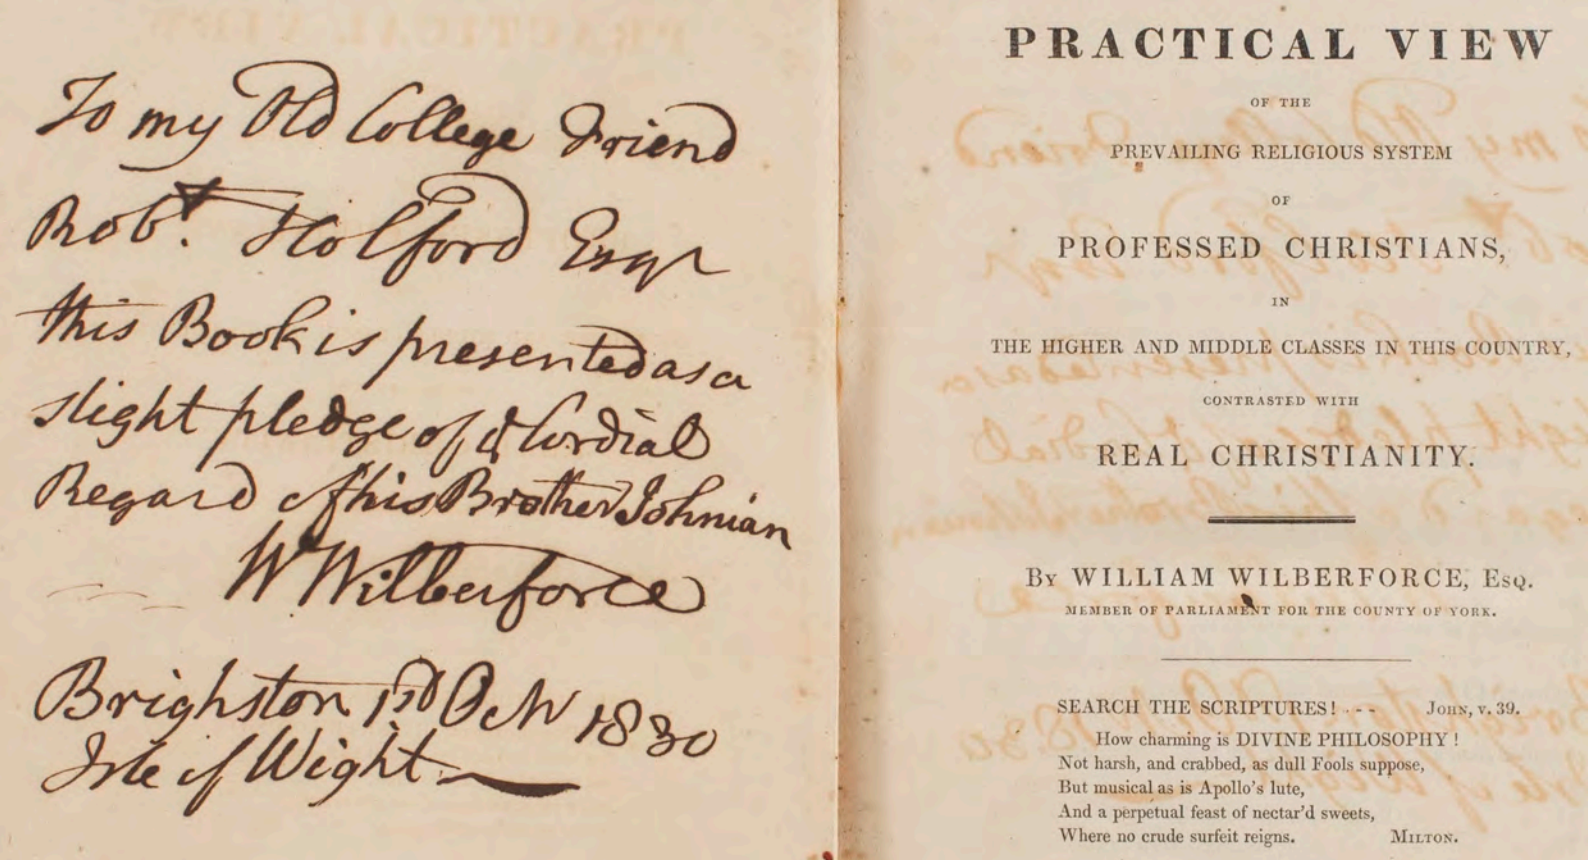 To my Old College Friend
Robt. Holford Esqr
this Book is presented as a
slight pledge of & Cordial
Regard of his Brother Johnian
W Wilberforce
Brighston Octr 1830
Isle of Wight
PRACTICAL VIEW
OF THE
PREVAILING RELIGIOUS SYSTEM
OF
PROFESSED CHRISTIANS,
IN
THE HIGHER AND MIDDLE CLASSES IN THIS COUNTRY,
CONTRASTED WITH
REAL CHRISTIANITY.
By WILLIAM WILBERFORCE, Esq.
MEMBER OF PARLIAMENT FOR THE COUNTY OF YORK.
SEARCH THE SCRIPTURES! - - - John, v. 39.
How charming is DIVINE PHILOSOPHY !
Not harsh, and crabbed, as dull Fools suppose,
But musical as is Apollo's lute,
And a perpetual feast of nectar'd sweets,
Where no crude surfeit reigns. Milton.